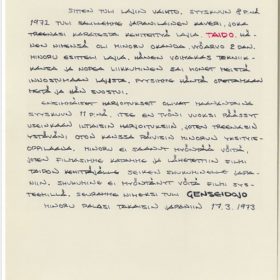 SITTEN TULI LAJIN VAIHTO. SYYSKUUN 8 P:NÄ
1972 TULI SALILLEMME JAPANILAINEN KAVERI, JOKA
TREENASI KARATESTA KEHITETTYÄ LAJIA TAIDO. HÄ-
NEN NIMENSÄ OLI MINORU OKANDA, VYÖARVO 2 DAN.
MINORU ESITTELI LAJIA. HÄNEN VOIMAKAS TEKNIIK-
KANSA JA NOPEA LIIKKUMINEN SAI MONET MEISTÄ
INNOSTUMAAN LAJISTA. PYYSIMME HÄNTÄ OPETTAMAAN
MEITÄ JA HÄN SUOSTUI.
ENSIMMÄISET HARJOITUKSET OLIVAT MAANANTAINA
SYYSKUUN 11 P:NÄ. ITSE EN TYÖNI VUOKSI PÄÄSSYT
USEINKAAN ILTAISIN HARJOITUKSIIN, JOTEN TREENASIN
YSTÄVÄNI OTON KANSSA PÄIVISIN MINORUN YKSITYIS-
OPPILAANA. MINORU EI SAANUT MYÖNTÄÄ VÖITÄ,
JOTEN FILMASIMME KATAMME JA LÄHETETTIIN FILMI
TAIDON KEHITTÄJÄLLE SEIKEN SHUKUMINELLE JAPA-
NIIN. SHUKUMINE EI MYÖNTÄNYT VÖITÄ FILMI SYS-
TEEMILLÄ. SEURAMME NIMEKSI TULI GENSEIDOJO
MINORU PALASI TAKAISIN JAPANIIN 17.3.1973